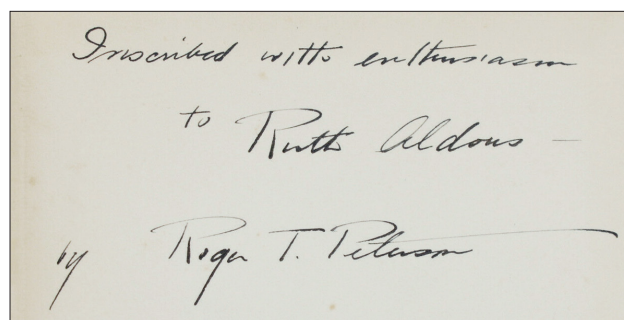 Inscribed with enthusiasm
to Ruth Aldous —
by Roger T. Peterson